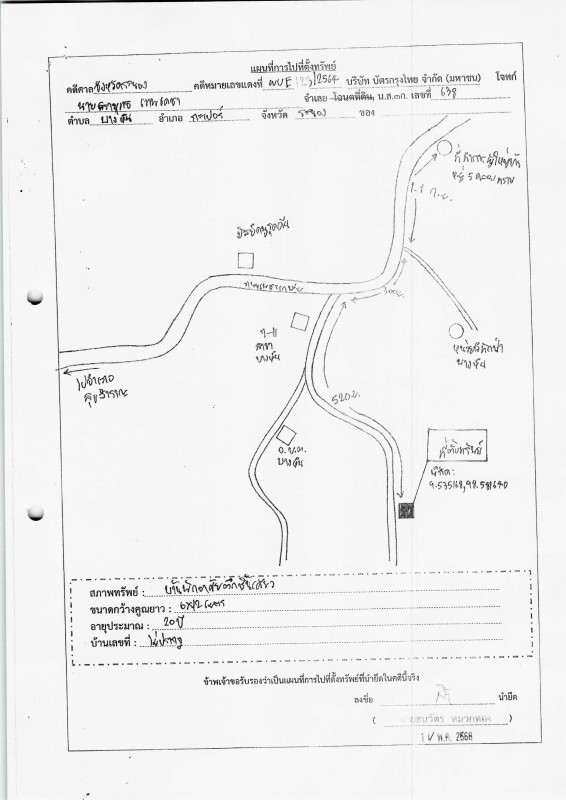 แผนที่การไปที่ตั้งทรัพย์
คดีศาลจังหวัดระนอง คดีหมายเลขแดงที่ ผบE /2564 บริษัท บัตรกรุงไทย จำกัด (มหาชน) โจทก์
จำเลย โฉนดที่ดิน, น.ส.๓ก. เลขที่ 638
ตำบล บางหิน อำเภอ กะเปอร์ จังหวัด ระนอง ของ
หมู่ 5
1.1 ก.ม.
ถนนเพชรเกษม
300ม.
7-11
สาขา
บางหิน
บางหิน
ไปอำเภอ
สุขสำราญ
520ม.
อ.บ.ต.
บางหิน
ที่ตั้งทรัพย์
พิกัด:
สภาพทรัพย์ : บ้านพักอาศัยตึกชั้นเดียว
ขนาดกว้างคูณยาว : เมตร
อายุประมาณ : 20 ปี
บ้านเลขที่ : ไม่ปรากฏ
ข้าพเจ้าขอรับรองว่าเป็นแผนที่การไปที่ตั้งทรัพย์ที่นำยึดในคดีนี้จริง
ลงชื่อ นำยึด
( หมวกทอง )
พ.ค. 2568